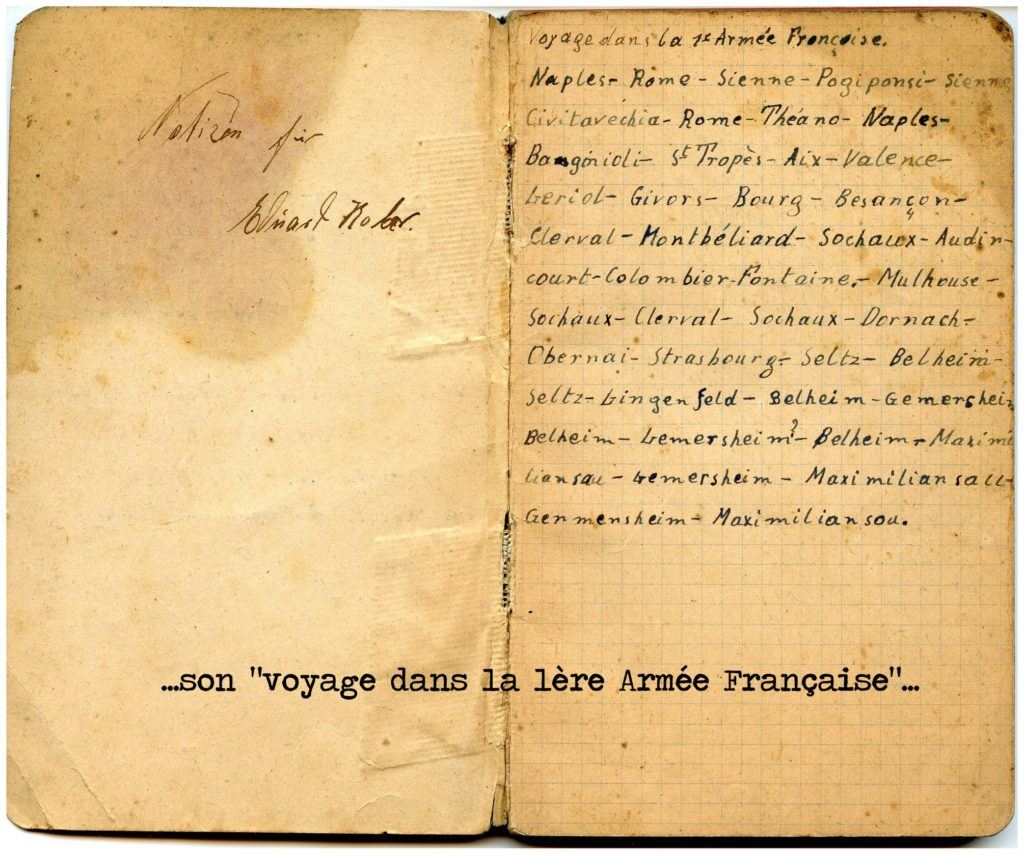 Notizen für
Eduard Kober.
Voyage dans la 1e Armée Françoise.
Naples- Rome - Sienne - Pogiponsi- Sienne
Civitavéchia- Rome- Théano- Naples-
St Tropès- Aix- Valence-
Leriol- Givors- Bourg- Besançon-
Clerval- Montbéliard- Sochaux- Audin-
court- Colombier-Fontaine.- Mulhouse-
Sochaux- Clerval- Sochaux- Dornach-
Obernai- Strasbourg- Seltz- Belheim-
Seltz- Lingenfeld- Belheim- Gemersheim
Belheim- Gemersheim?- Belheim- Maximi
liansau- Gemersheim- Maximiliansau-
Genmensheim- Maximiliansou.
...son "voyage dans la 1ère Armée Française"...